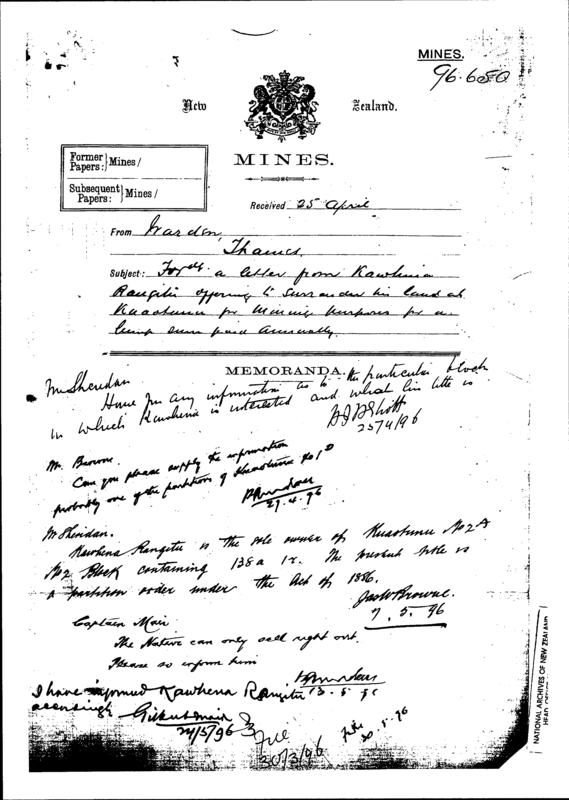 MINES.
96.650
New Zealand.
MINES.
Former Papers: } Mines/
Subsequent Papers: } Mines/
Received 25 April
From Warden,
Thames.
Subject: Fordg. a letter from Kawhena
Rangitu offering to surrender his land at
Kuaotunu for Mining purposes for a
lump sum paid annually.
MEMORANDA.
Mr Sheridan
Have you any information as to the particular block
in which Kawhena is interested and what his title is
25/4/96
Mr. Browne.
Can you please supply the information
probably one of the partitions of Kuaotunu No 1D
P Sheridan
29.4.96
Mr Sheridan.
Kawhena Rangitu is the sole owner of Kuaotunu No 2A
No 2 Block containing 138a 1r. The present title is
a partition order under the Act of 1886.
Jas W Browne.
7.5.96
Captain Mair
The Native can only sell right out.
Please so inform him
P Sheridan
13.5.96
I have informed Kawhena Rangitu
accordingly Gilbert Mair
24/5/96
File
20/5/96
5.96
NATIONAL ARCHIVES OF NEW ZEALAND
HEAD OFFICE